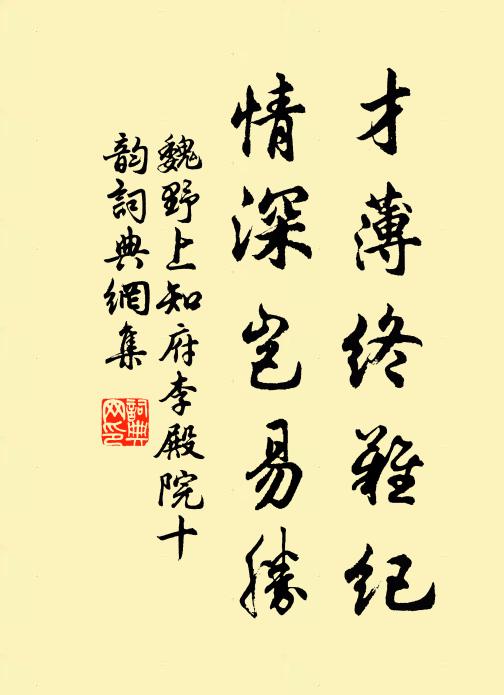 才薄终难纪
情深岂易勝
魏野上知府李殿院十
韵詞典網集
詞典
网印